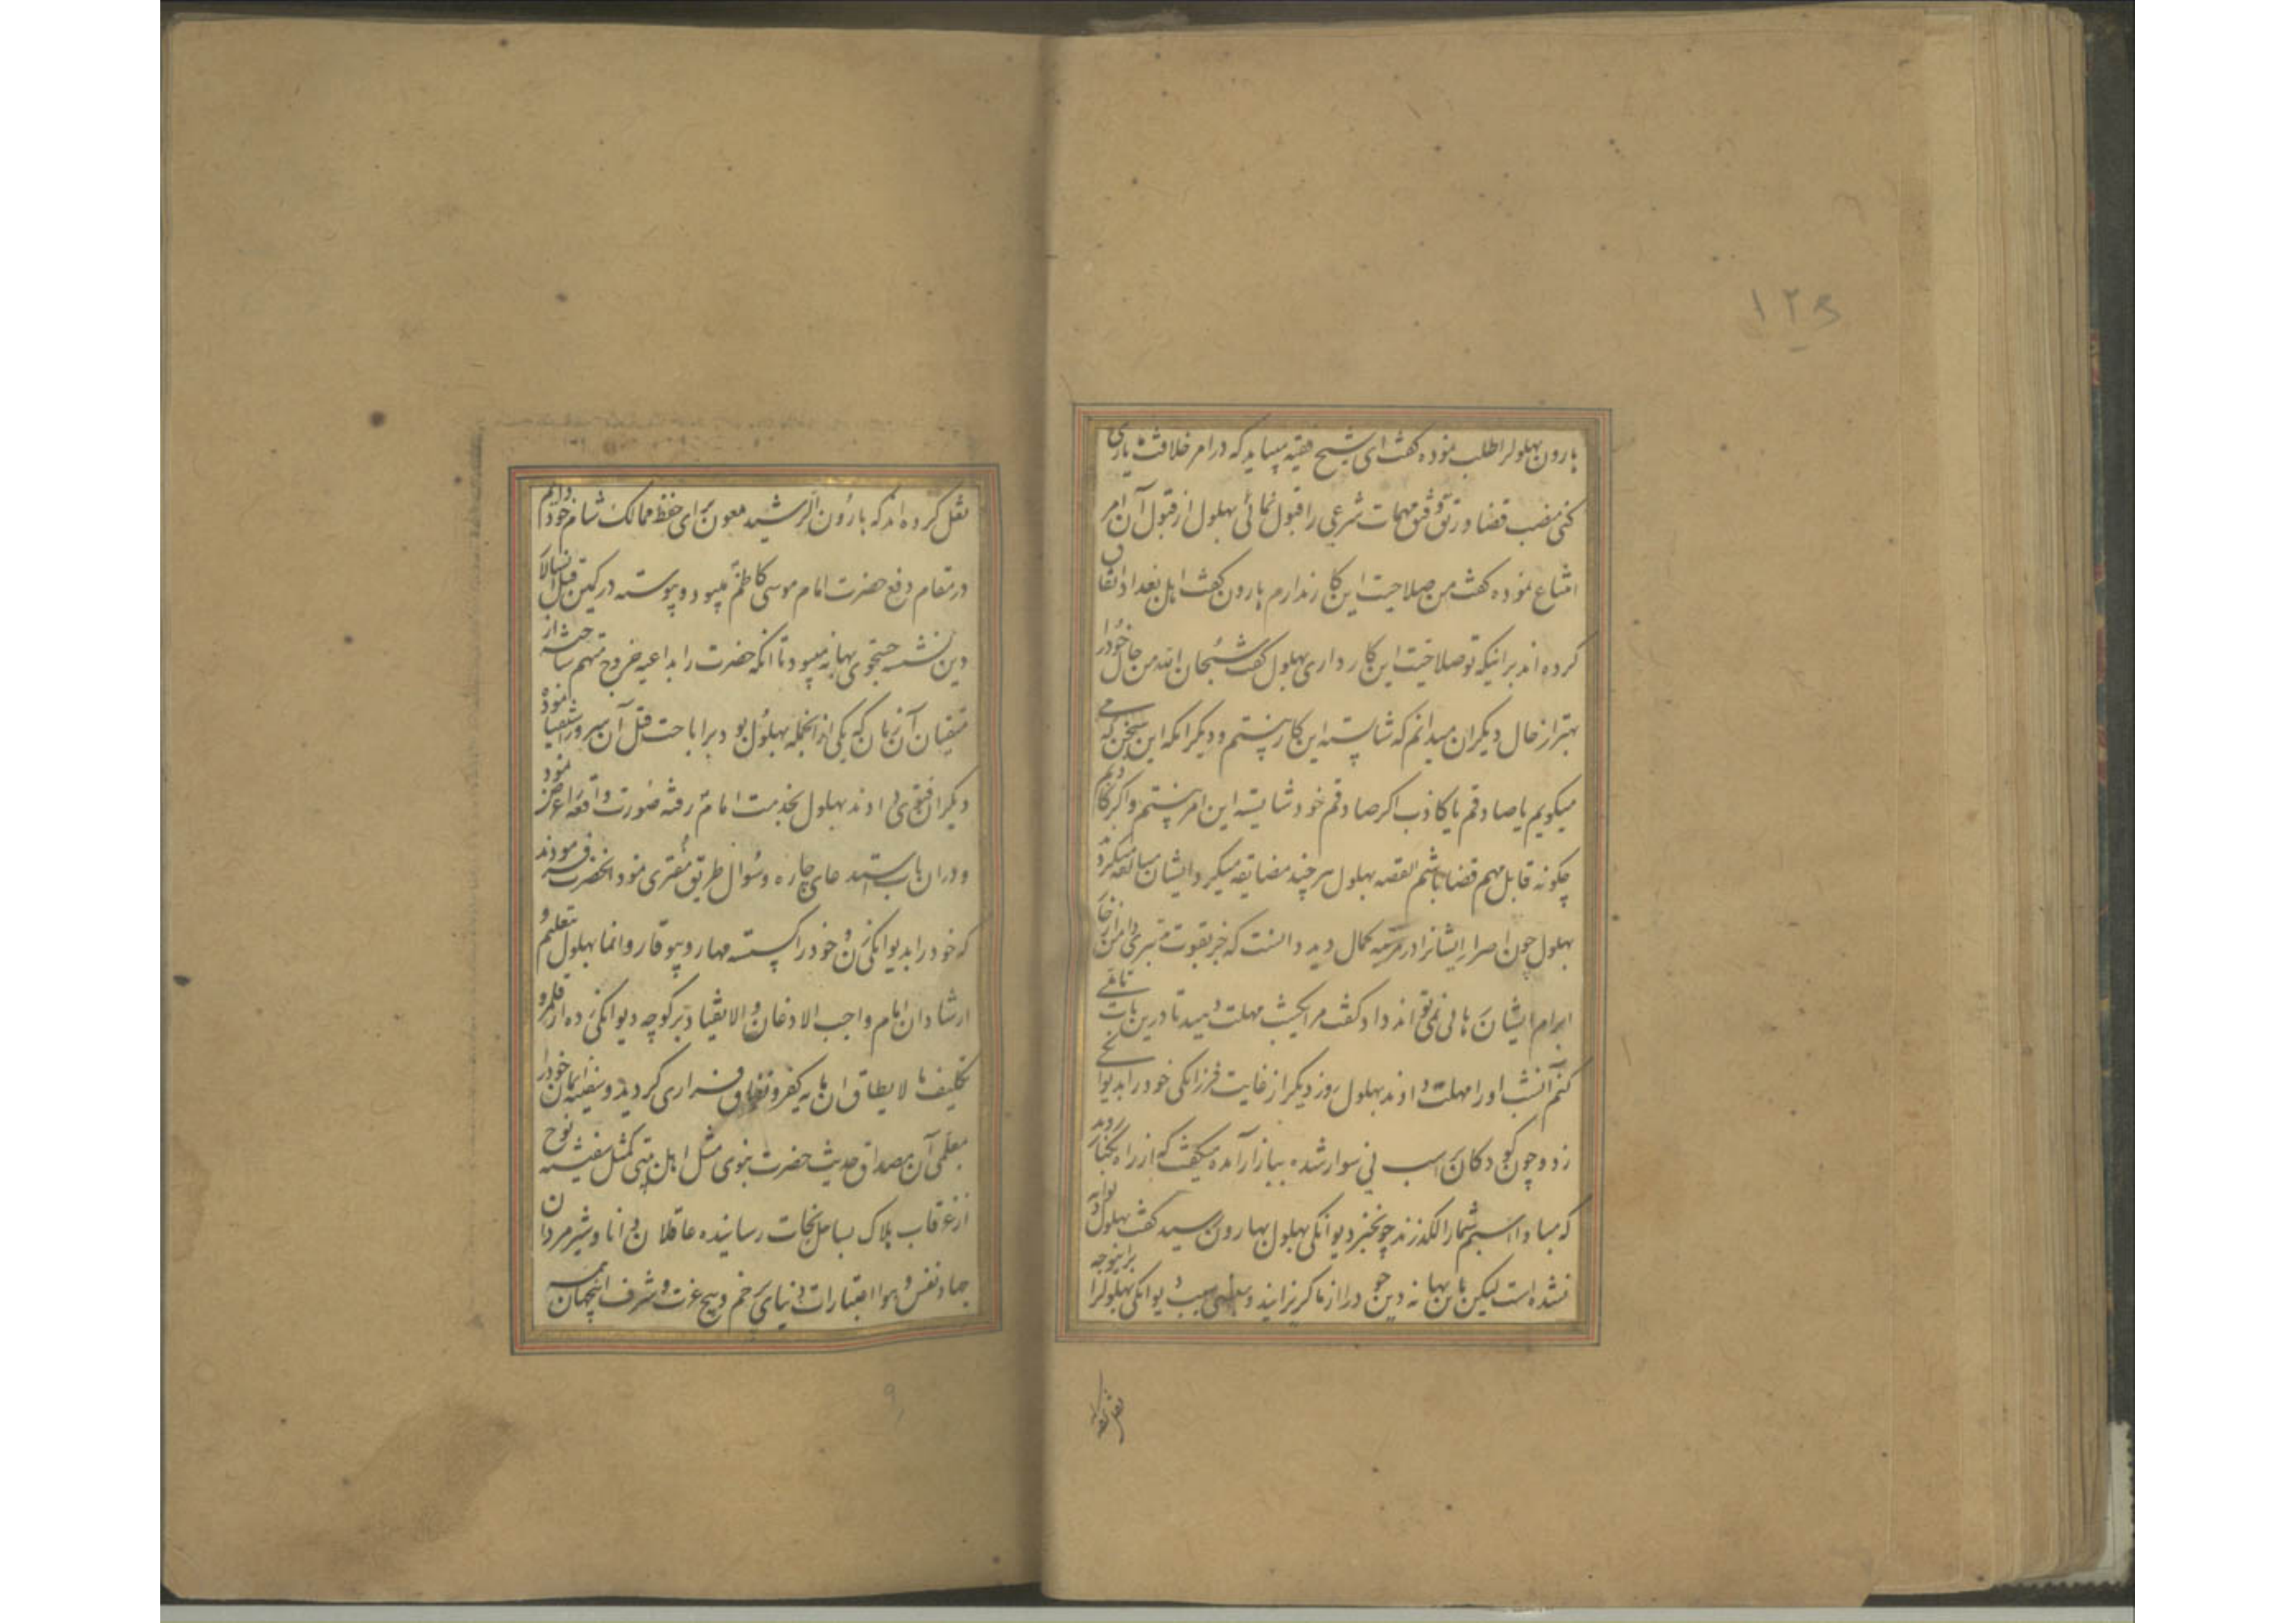 ۱۲۵
هارون بهلولرا طلب نموده كفت ای شیخ فقیه میباید که در امر خلافت یاری
کنی منصب قضا و رتق و فتق مهمات شرعی را قبول نمائی بهلول از قبول آن امر
امتناع نموده کفت من صلاحیت این کار ندارم هارون کفت اهل بغداد اتفاق
کرده اند بر اینکه تو صلاحیت این کار داری بهلول کفت سبحان الله من حال خود را
بهتر از حال دیکران میدانم که شایسته این کار نیستم و دیکر انکه این سخن که می
میکویم یا صادقم یا کاذب اکر صادقم خود شایسته این امر نیستم و اکر کاذبم
چکونه قابل مهم قضا باشم القصه بهلول هر چند مضایقه میکرد ایشان مبالغه میکردند
بهلول چون اصرار ایشانرا در مرتبه کمال دید دانست که جز بقوت تدبیری دامن از خار
ابرام ایشان رهانی نمی تواند داد کفت مرا یکشب مهلت دهید تا درین باب تاملی
کنم آنشب او را مهلت دادند بهلول روز دیکر از غایت فرزانکی خود را بدیوانکی
زد و چون کودکان بر اسب نی سوار شده ببازار آمده میکفت که از راه بکنار روید
که مبادا اسبم شما را لکد زند چون خبر دیوانکی بهلول بهارون رسید کفت بهلول دیوانه
نشده است لیکن باین بهانه دین خود را از ما کریزانید و بعضی سبب دیوانکی بهلولرا براینوجه
نقل کرده‌اند
نقل کرده‌اند که هارون الرشید ملعون برای حفظ ممالک شام خود دایم
در مقام دفع حضرت امام موسی کاظم میبود و پیوسته در کمین قتل انسالار
دین نشسته جستجوی بهانه میبود تا انکه حضرت را بداعیه خروج متهم ساخته از
متقیان آن زمان که یکی از انجمله بهلول بود برای اباحت قتل آن سرور استفتا نموده
دیکران فتوی دادند بهلول بخدمت امام رفته صورت واقعه را عرض نمود
و دران باب استدعای چاره و سوال طریق مفری نمود انحضرت فرمودند
که خود را بدیوانکی زن و خود را کسسته مهار و بیوقار وانما بهلول بتعلیم و
ارشاد ان امام واجب الاذعان و الانقیاد بر کوچه دیوانکی زده از قلمرو
تکلیف ما لا یطاق ان پایه کفر و نفاق فراری کردید و سفینه ایمان خود را
بمعلمی آن مصداق حدیث حضرت نبوی مثل اهل بیتی کمثل سفینه نوح
از غرقاب هلاک بساحل نجات رسانیده عاقلان دانا و شیرمردان
جهاد نفس و هوا اعتبارات دنیای پرخم و پیچ عزت و شرف اینجهان